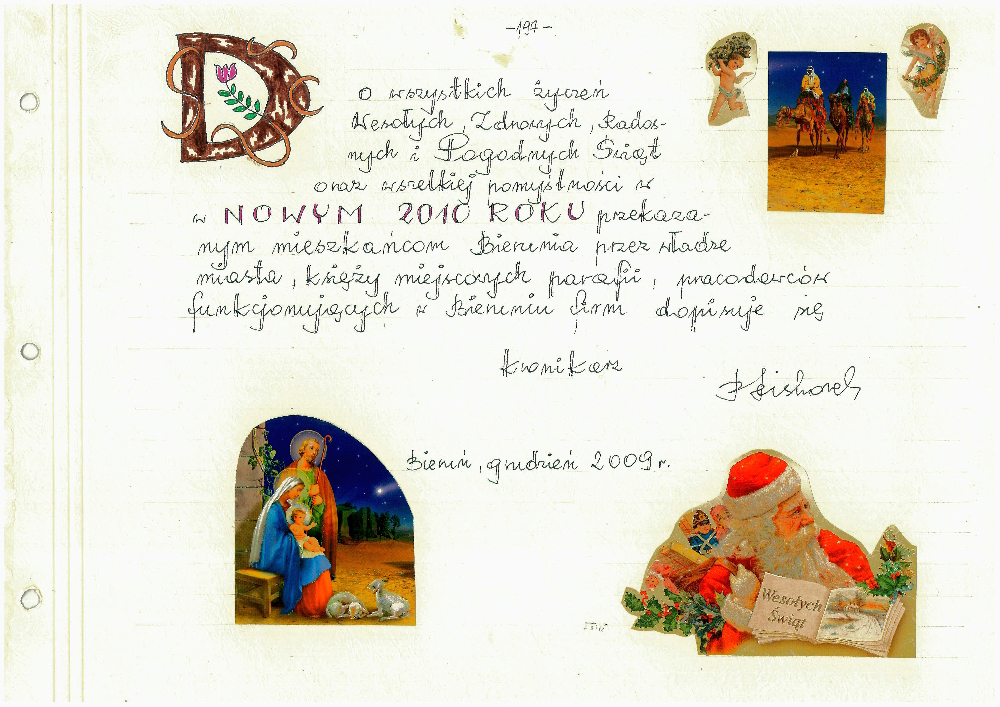 -197-
Do wszystkich życzeń
Wesołych, Zdrowych, Rados-
nych i Pogodnych Świąt
oraz wszelkiej pomyślności w
w NOWYM 2010 ROKU przekaza-
nym mieszkańcom Bierunia przez władze
miasta, księży miejscowych parafii, pracodawców
funkcjonujących w Bieruniu firm dopisuje się
Kronikarz
Bieruń, grudzień 2009 r.
Wesołych
Świąt